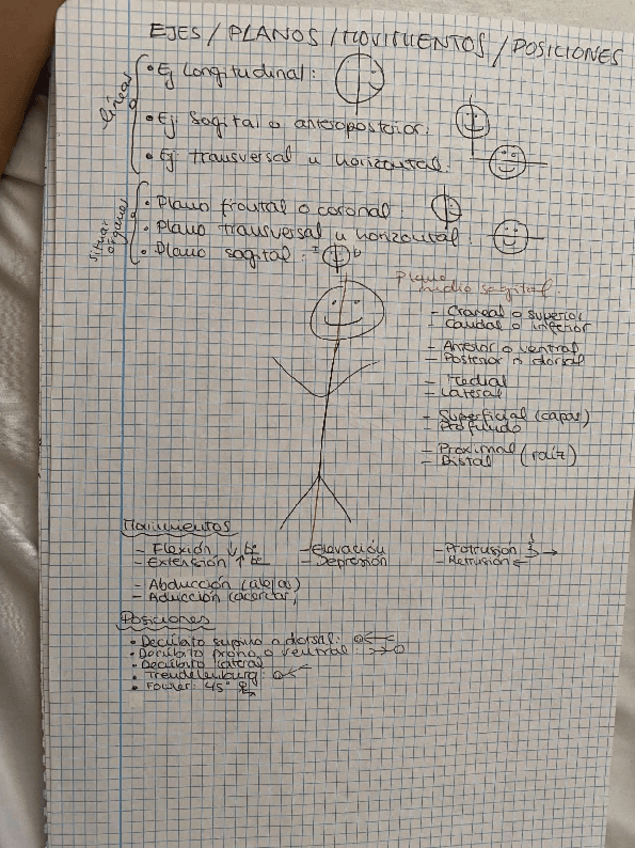 EJES / PLANOS / MOVIMIENTOS / POSICIONES
líneas
• Ej Longitudinal:
• Ej Sagital o anteroposterior:
• Ej transversal u horizontal:
situar órganos
• Plano frontal o coronal:
• Plano transversal u horizontal:
• Plano sagital: I D
medio sagital:
- Craneal o superior
- Caudal o inferior
- Anterior o ventral
- Posterior o dorsal
- Medial
- Lateral
- Superficial (capas)
- Profundo
- Proximal (raíz)
- Distal
Movimientos
- Flexión ↓
- Extensión ↑
- Abducción (alejas)
- Aducción (acercas)
- Elevación
- Depresión
- Protrusión →
- Retrusión ←
Posiciones
• Decúbito supino o dorsal:
• Decúbito prono o ventral:
• Decúbito lateral
• Trendelenburg:
• Fowler: 45°